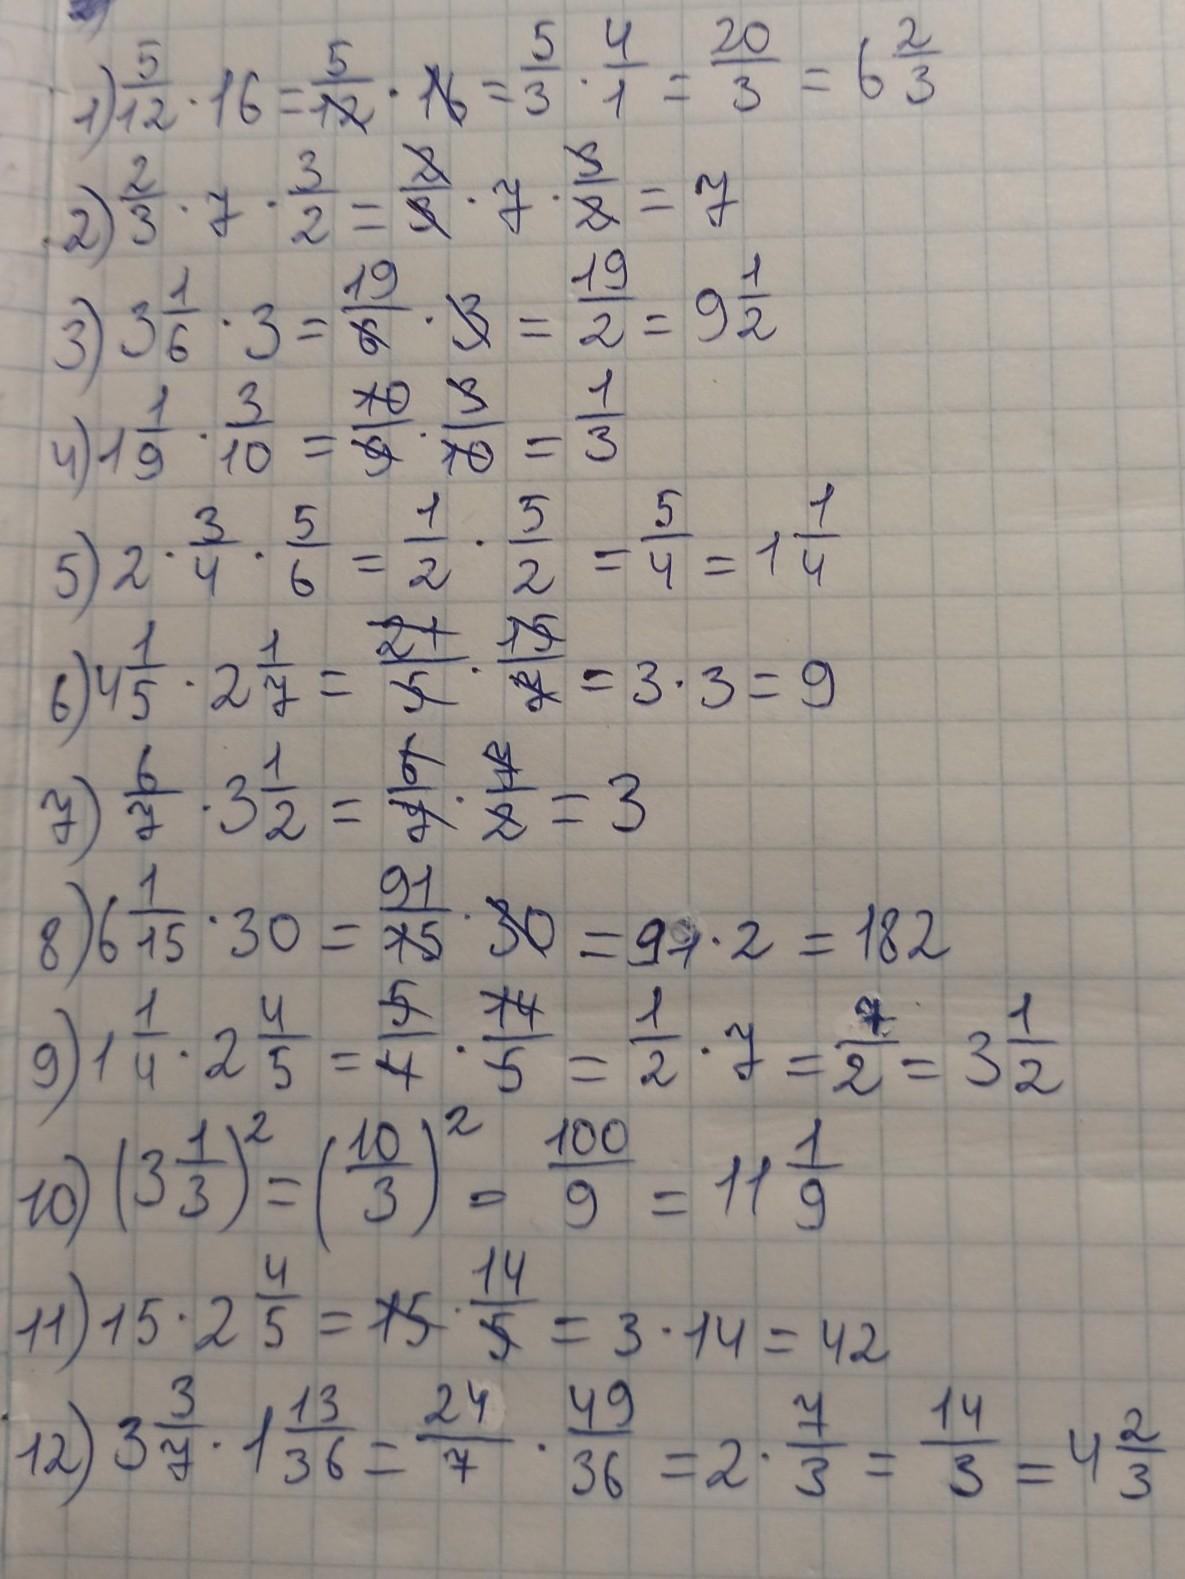 1) 5/12 · 16 = 5/12 · 16 = 5/3 · 4/1 = 20/3 = 6 2/3
2) 2/3 · 7 · 3/2 = 2/3 · 7 · 3/2 = 7
3) 3 1/6 · 3 = 19/6 · 3 = 19/2 = 9 1/2
4) 1 1/9 · 3/10 = 10/9 · 3/10 = 1/3
5) 2 · 3/4 · 5/6 = 1/2 · 5/2 = 5/4 = 1 1/4
6) 4 1/5 · 2 1/7 = 21/5 · 15/7 = 3 · 3 = 9
7) 6/7 · 3 1/2 = 6/7 · 7/2 = 3
8) 6 1/15 · 30 = 91/15 · 30 = 91 · 2 = 182
9) 1 1/4 · 2 4/5 = 5/4 · 14/5 = 1/2 · 7 = 7/2 = 3 1/2
10) (3 1/3)² = (10/3)² = 100/9 = 11 1/9
11) 15 · 2 4/5 = 15 · 14/5 = 3 · 14 = 42
12) 3 3/7 · 1 13/36 = 24/7 · 49/36 = 2 · 7/3 = 14/3 = 4 2/3